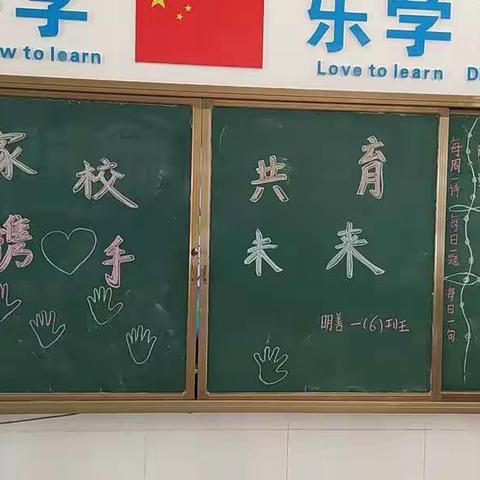 学
乐学
w to learn
Love to learn
D
家校
携手
共育
未来
明善一(6)班
每周一诗
每日一题
每日一句